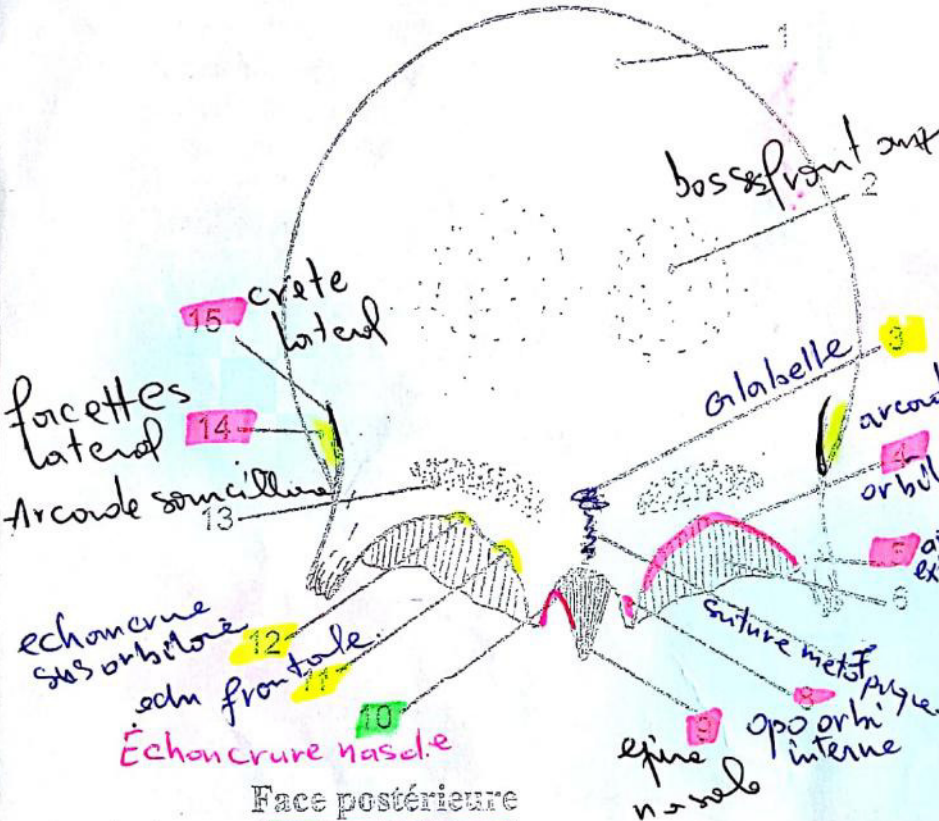 1
bosses frontaux
2
15
crete
lateral
3
Glabelle
facettes
lateral
14
4
arcad
orbit
Arcade sourcilliere
13
5
6
echancrure
sus orbitaire
12
ech frontale
11
suture metopique
7
10
Échancrure nasale
9
epine
nasale
8
apo orbi
interne
Face postérieure